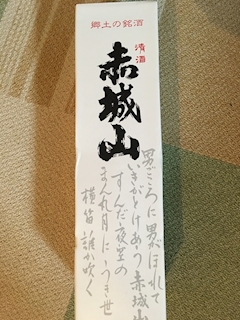 郷土の銘酒
清酒
赤城山
男ごころに男がほれて
いきがとけあう赤城山
すんだ夜空の
まん丸月にうき世
横笛誰が吹く